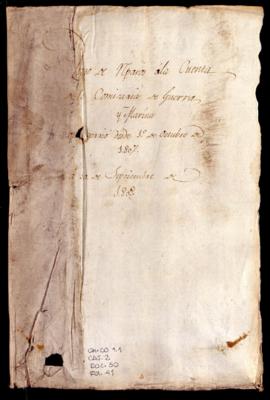 de Reparos á la Cuenta
de la Comisaria de Guerra
y Marina
desde 1º de Octubre de
1807
de Septiembre de
1808
CAJ. 2
DOC. 50
FOL. 41